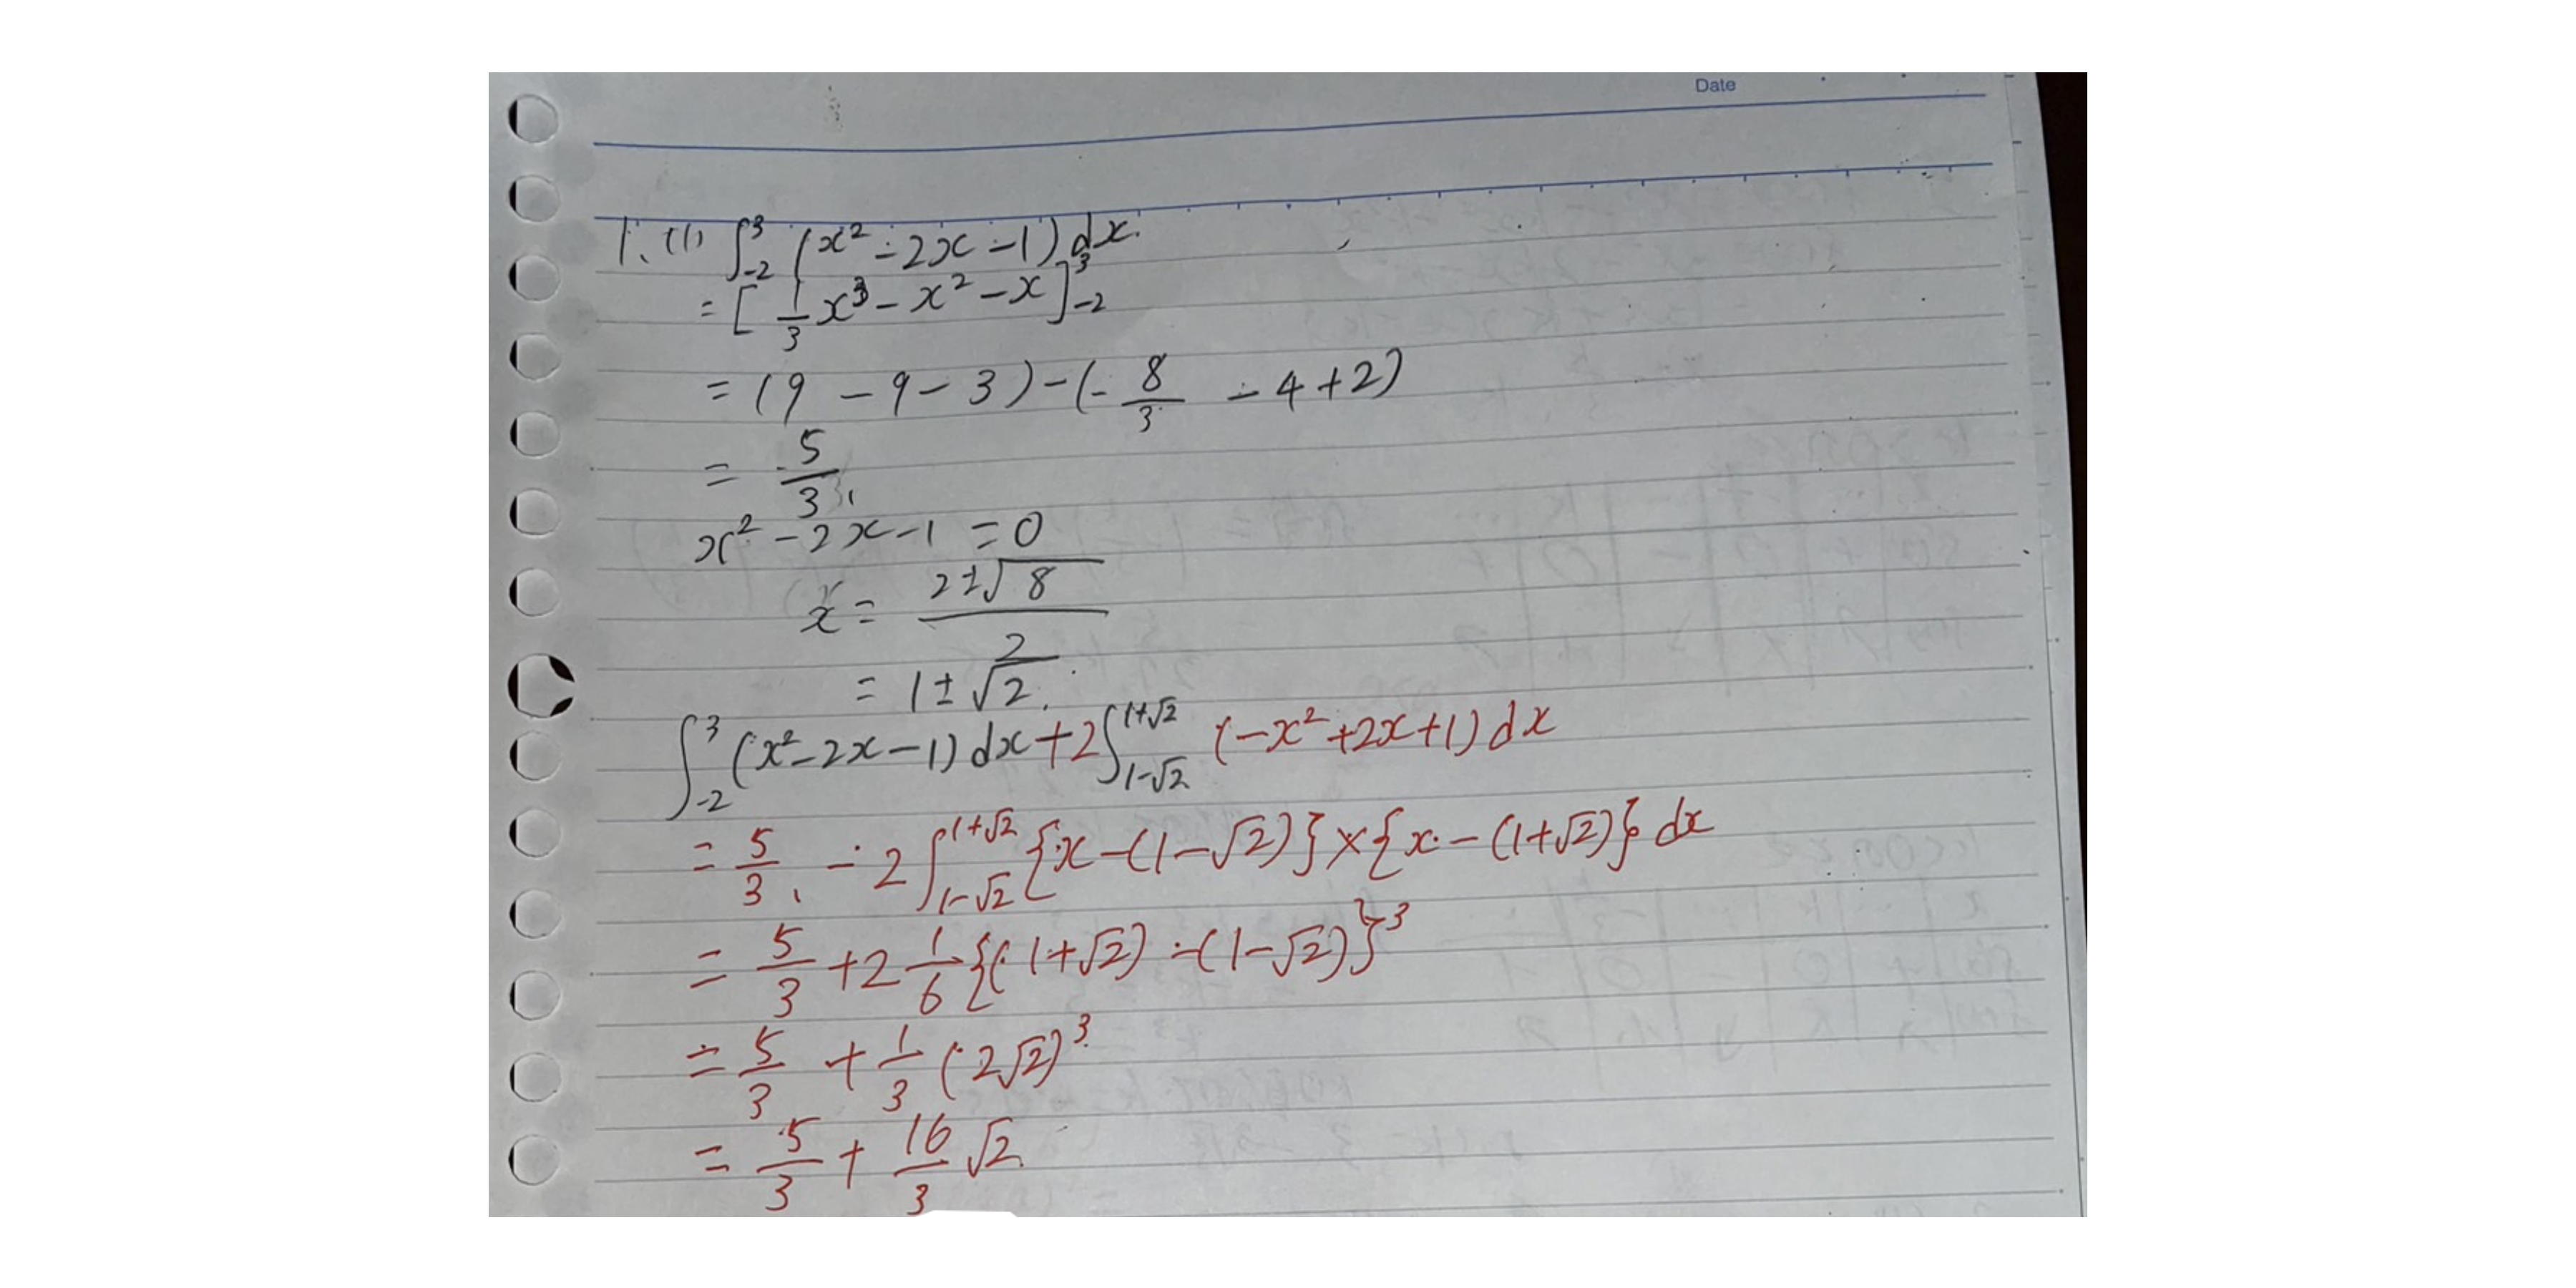 Date
1. (1) ∫_{-2}^{3} (x² - 2x - 1) dx.
= [ 1/3 x³ - x² - x ]_{-2}^{3}
= (9 - 9 - 3) - (- 8/3 - 4 + 2)
= 5/3
x² - 2x - 1 = 0
x = (2 ± √8)/2
= 1 ± √2.
∫_{-2}^{3} (x² - 2x - 1) dx + 2∫_{1-√2}^{1+√2} (-x² + 2x + 1) dx
= 5/3 - 2∫_{1-√2}^{1+√2} {x - (1 - √2)} × {x - (1 + √2)} dx
= 5/3 + 2 1/6 {(1 + √2) - (1 - √2)}³
= 5/3 + 1/3 (2√2)³
= 5/3 + 16/3 √2